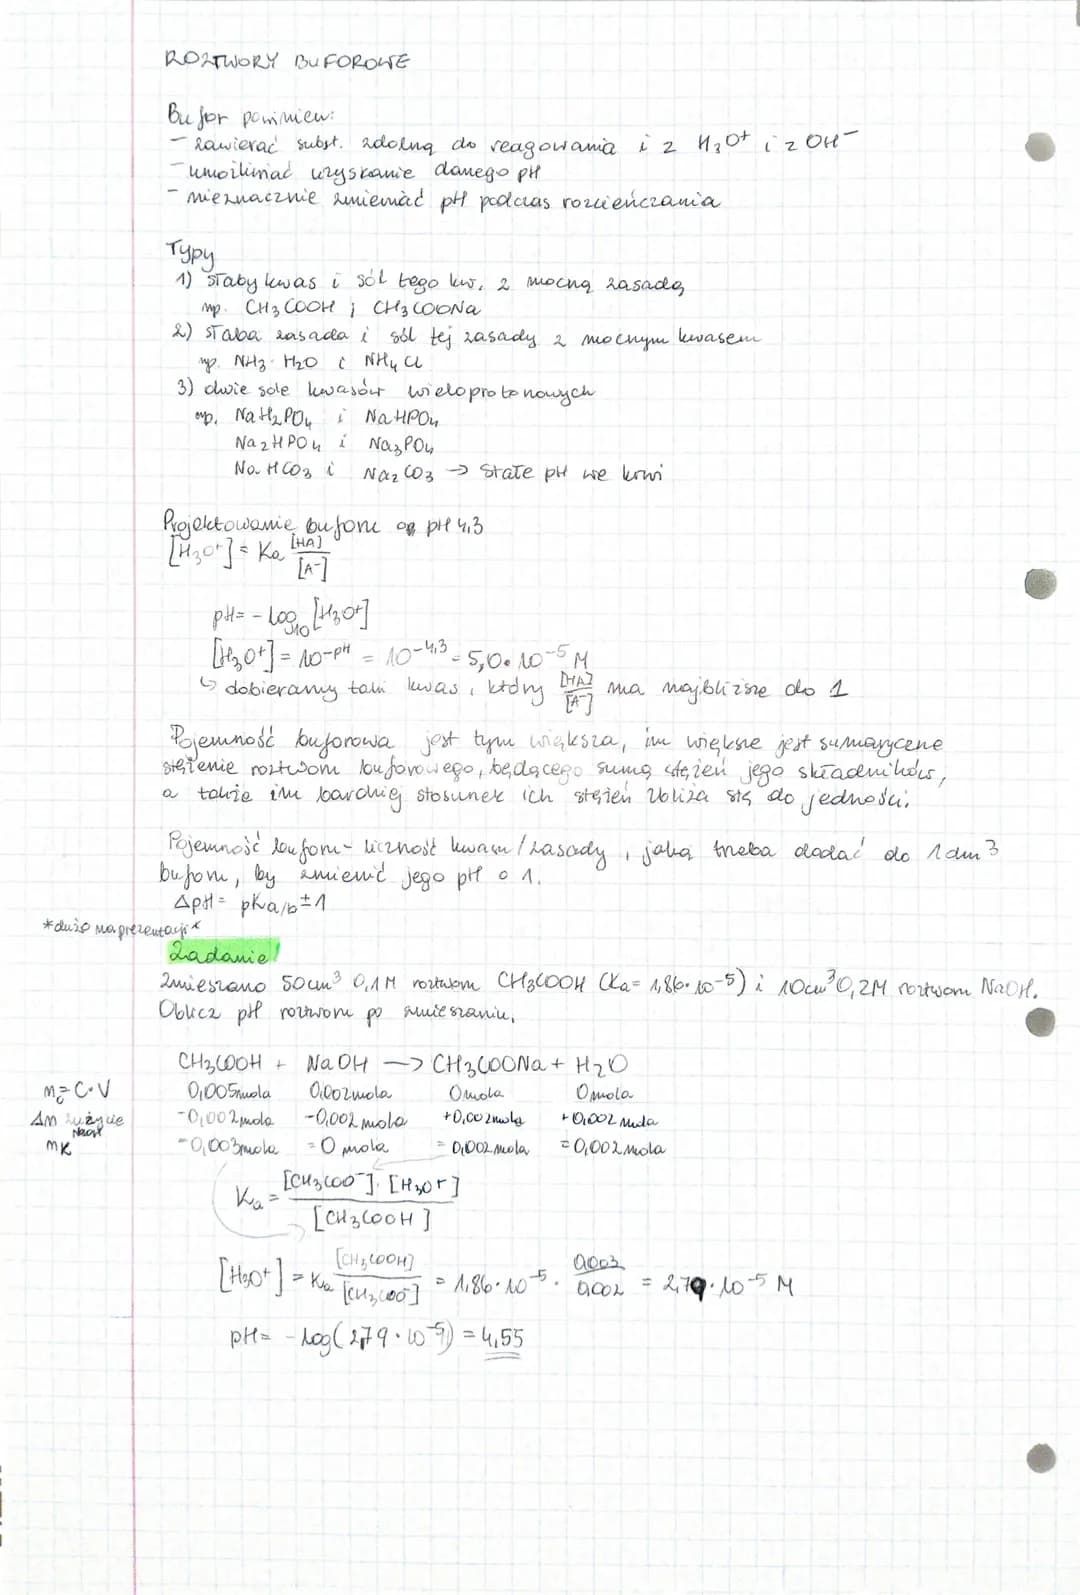 ROZTWORY BUFOROWE
Bufor powinien:
- zawierać subst. zdolną do reagowania i z H₃O⁺ i z OH⁻
- umożliwiać uzyskanie danego pH
- nieznacznie zmieniać pH podczas rozcieńczania
Typy
1) słaby kwas i sól tego kw. z mocną zasadą
np. CH₃COOH i CH₃COONa
2) słaba zasada i sól tej zasady z mocnym kwasem
np. NH₃·H₂O i NH₄Cl
3) dwie sole kwasów wieloprotonowych
np. NaH₂PO₄ i NaHPO₄
Na₂HPO₄ i Na₃PO₄
NaHCO₃ i Na₂CO₃ → stałe pH we krwi
Projektowanie buforu o pH 4,3
[H₃O⁺] = Ka [HA]/[A⁻]
pH = -log₁₀ [H₃O⁺]
[H₃O⁺] = 10^-pH = 10^-4,3 = 5,0·10⁻⁵ M
↳ dobieramy taki kwas, który [HA]/[A⁻] ma najbliższe do 1
Pojemność buforowa jest tym większa, im większe jest sumaryczne
stężenie roztworu buforowego, będącego sumą stężeń jego składników,
a także im bardziej stosunek ich stężeń zbliża się do jedności.
Pojemność buforu - liczność kwasu/zasady, jaką trzeba dodać do 1dm³
buforu, by zmienić jego pH o 1.
ΔpH = pKa/b ± 1
*dużo na prezentacji*
Zadanie!
Zmieszano 50cm³ 0,1M roztworu CH₃COOH (Ka = 1,86·10⁻⁵) i 10cm³ 0,2M roztworu NaOH.
Oblicz pH roztworu po zmieszaniu.
CH₃COOH + NaOH → CH₃COONa + H₂O
n₀=C·V 0,005mola 0,002mola 0mola 0mola
Δn zużycie NaOH -0,002mola -0,002mola +0,002mola +0,002mola
nK =0,003mola =0 mola =0,002mola =0,002mola
Ka = [CH₃COO⁻]·[H₃O⁺] / [CH₃COOH]
[H₃O⁺] = Ka [CH₃COOH]/[CH₃COO⁻] = 1,86·10⁻⁵ · 0,003/0,002 = 2,79·10⁻⁵ M
pH = -log(2,79·10⁻⁵) = 4,55